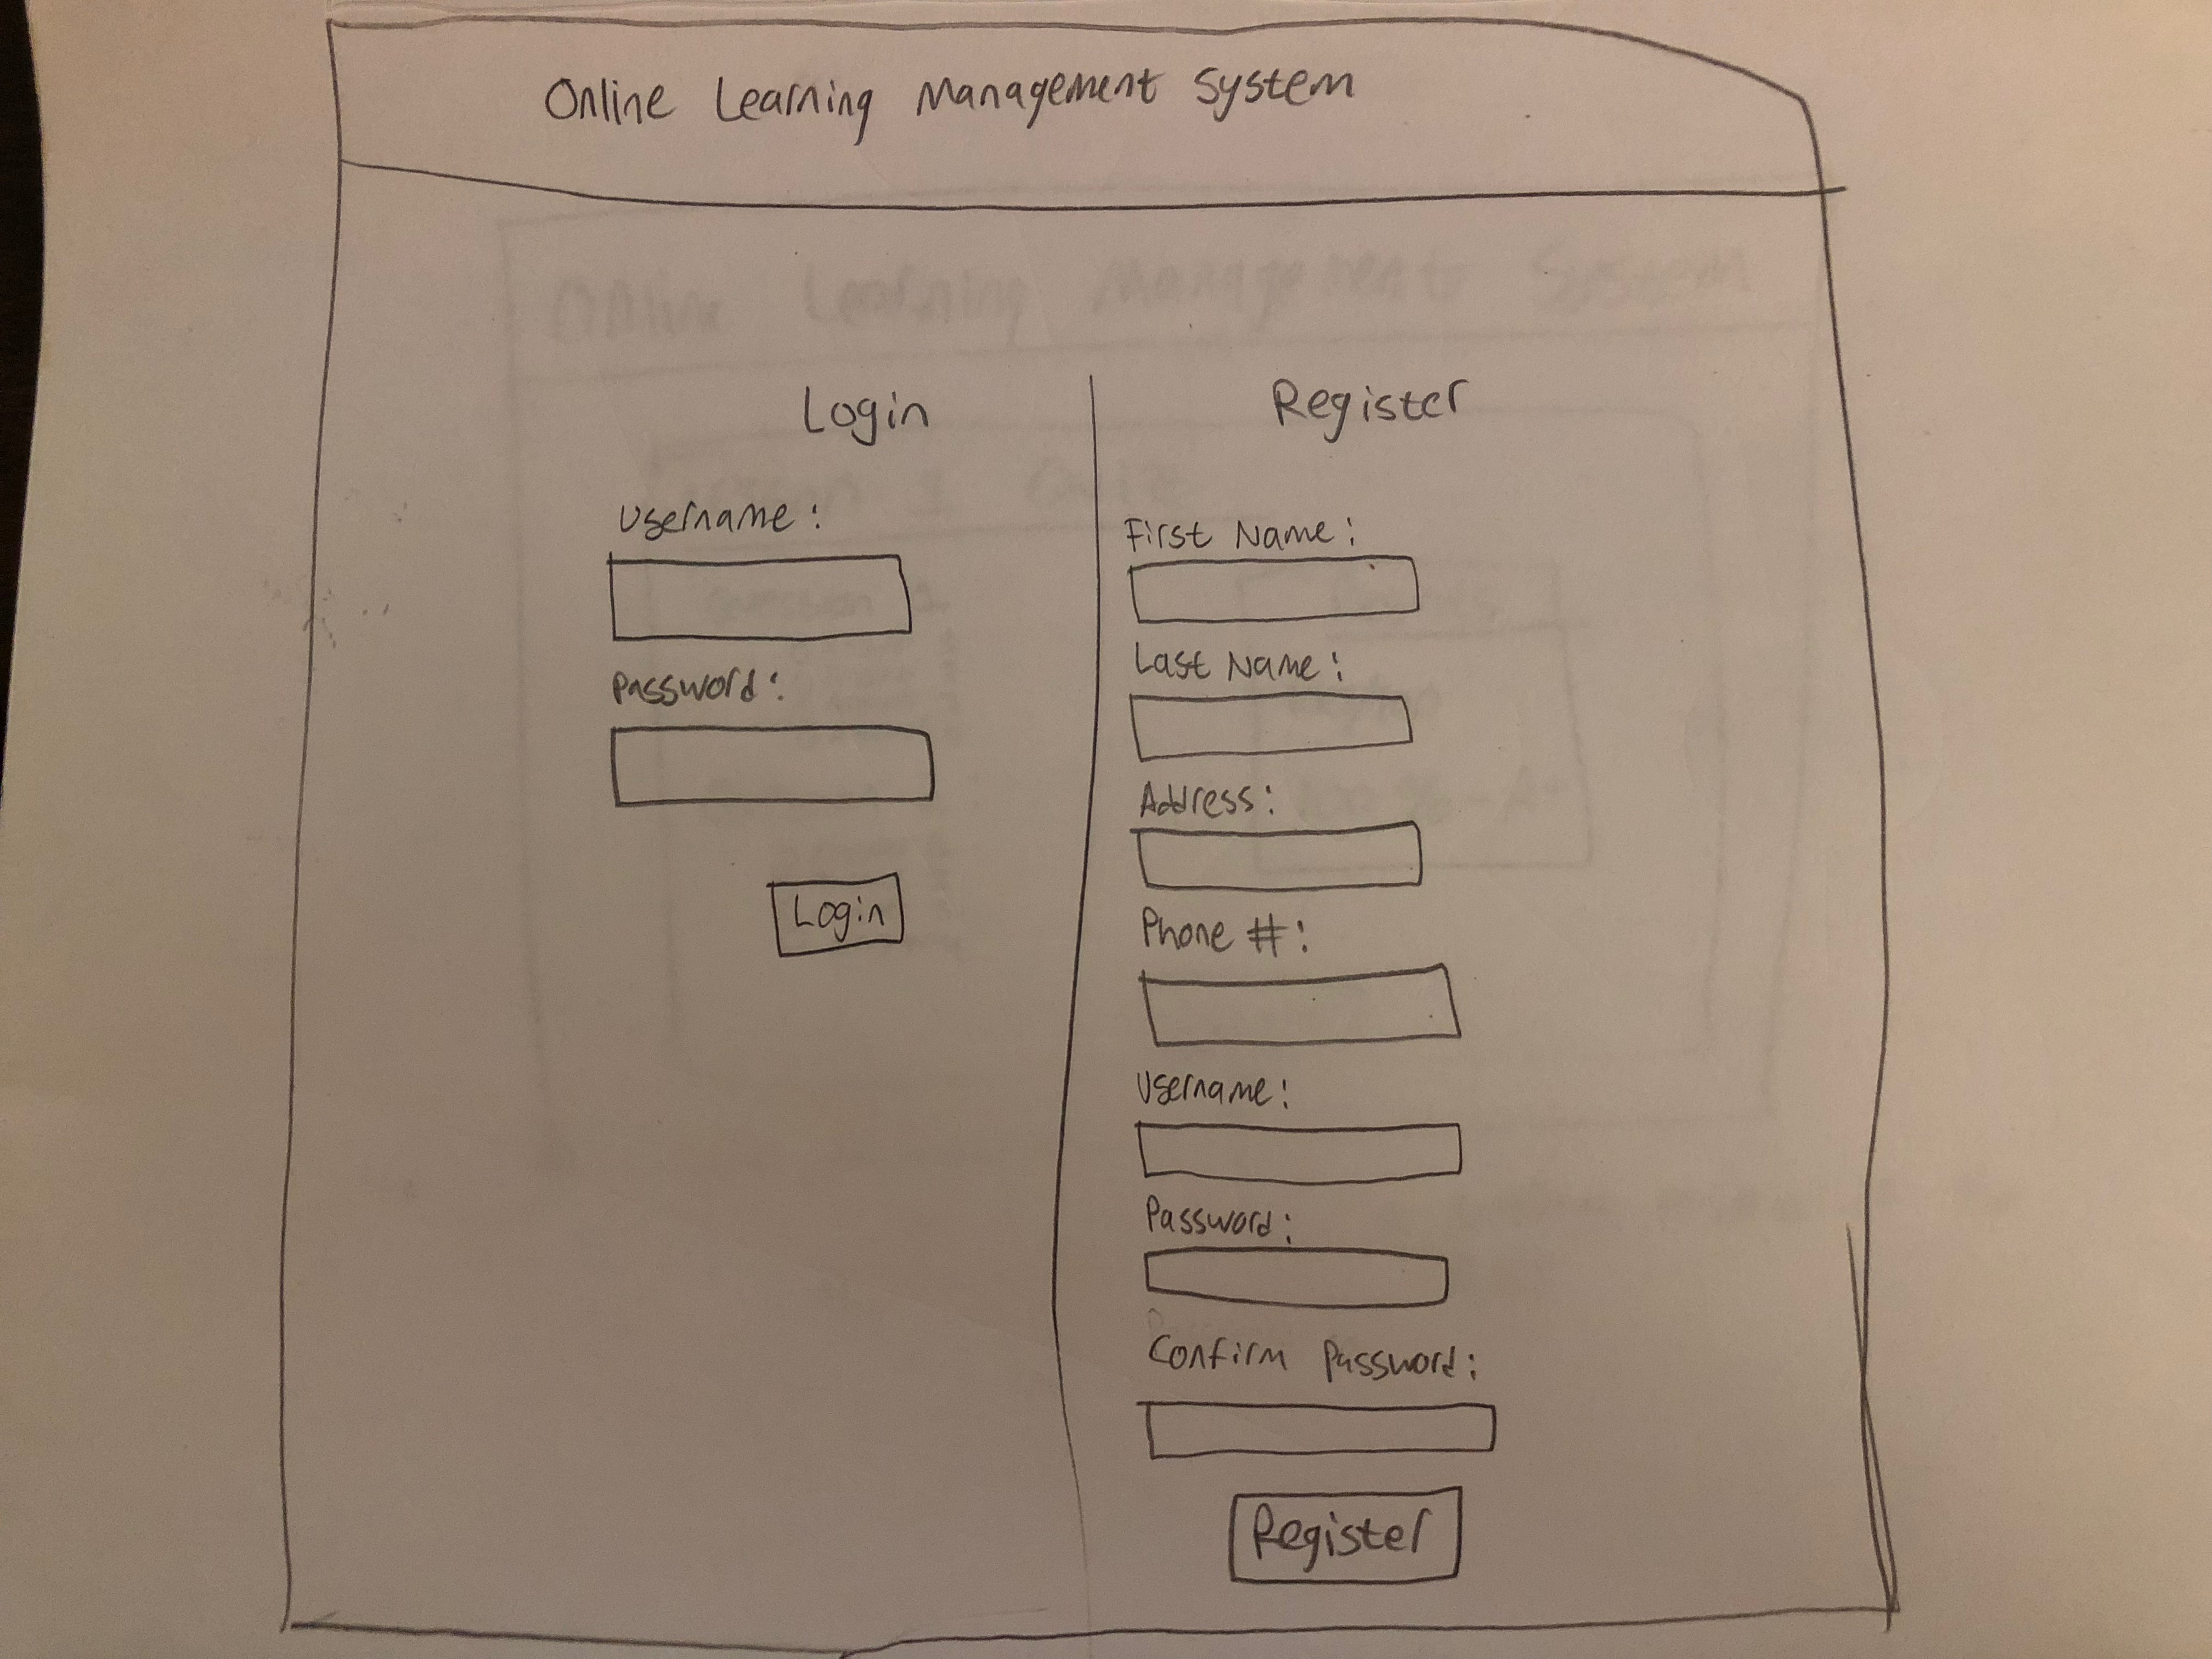 Online Learning Management System
Login
Username:
Password:
Login
Register
First Name:
Last Name:
Address:
Phone #:
Username:
Password:
Confirm Password:
Register